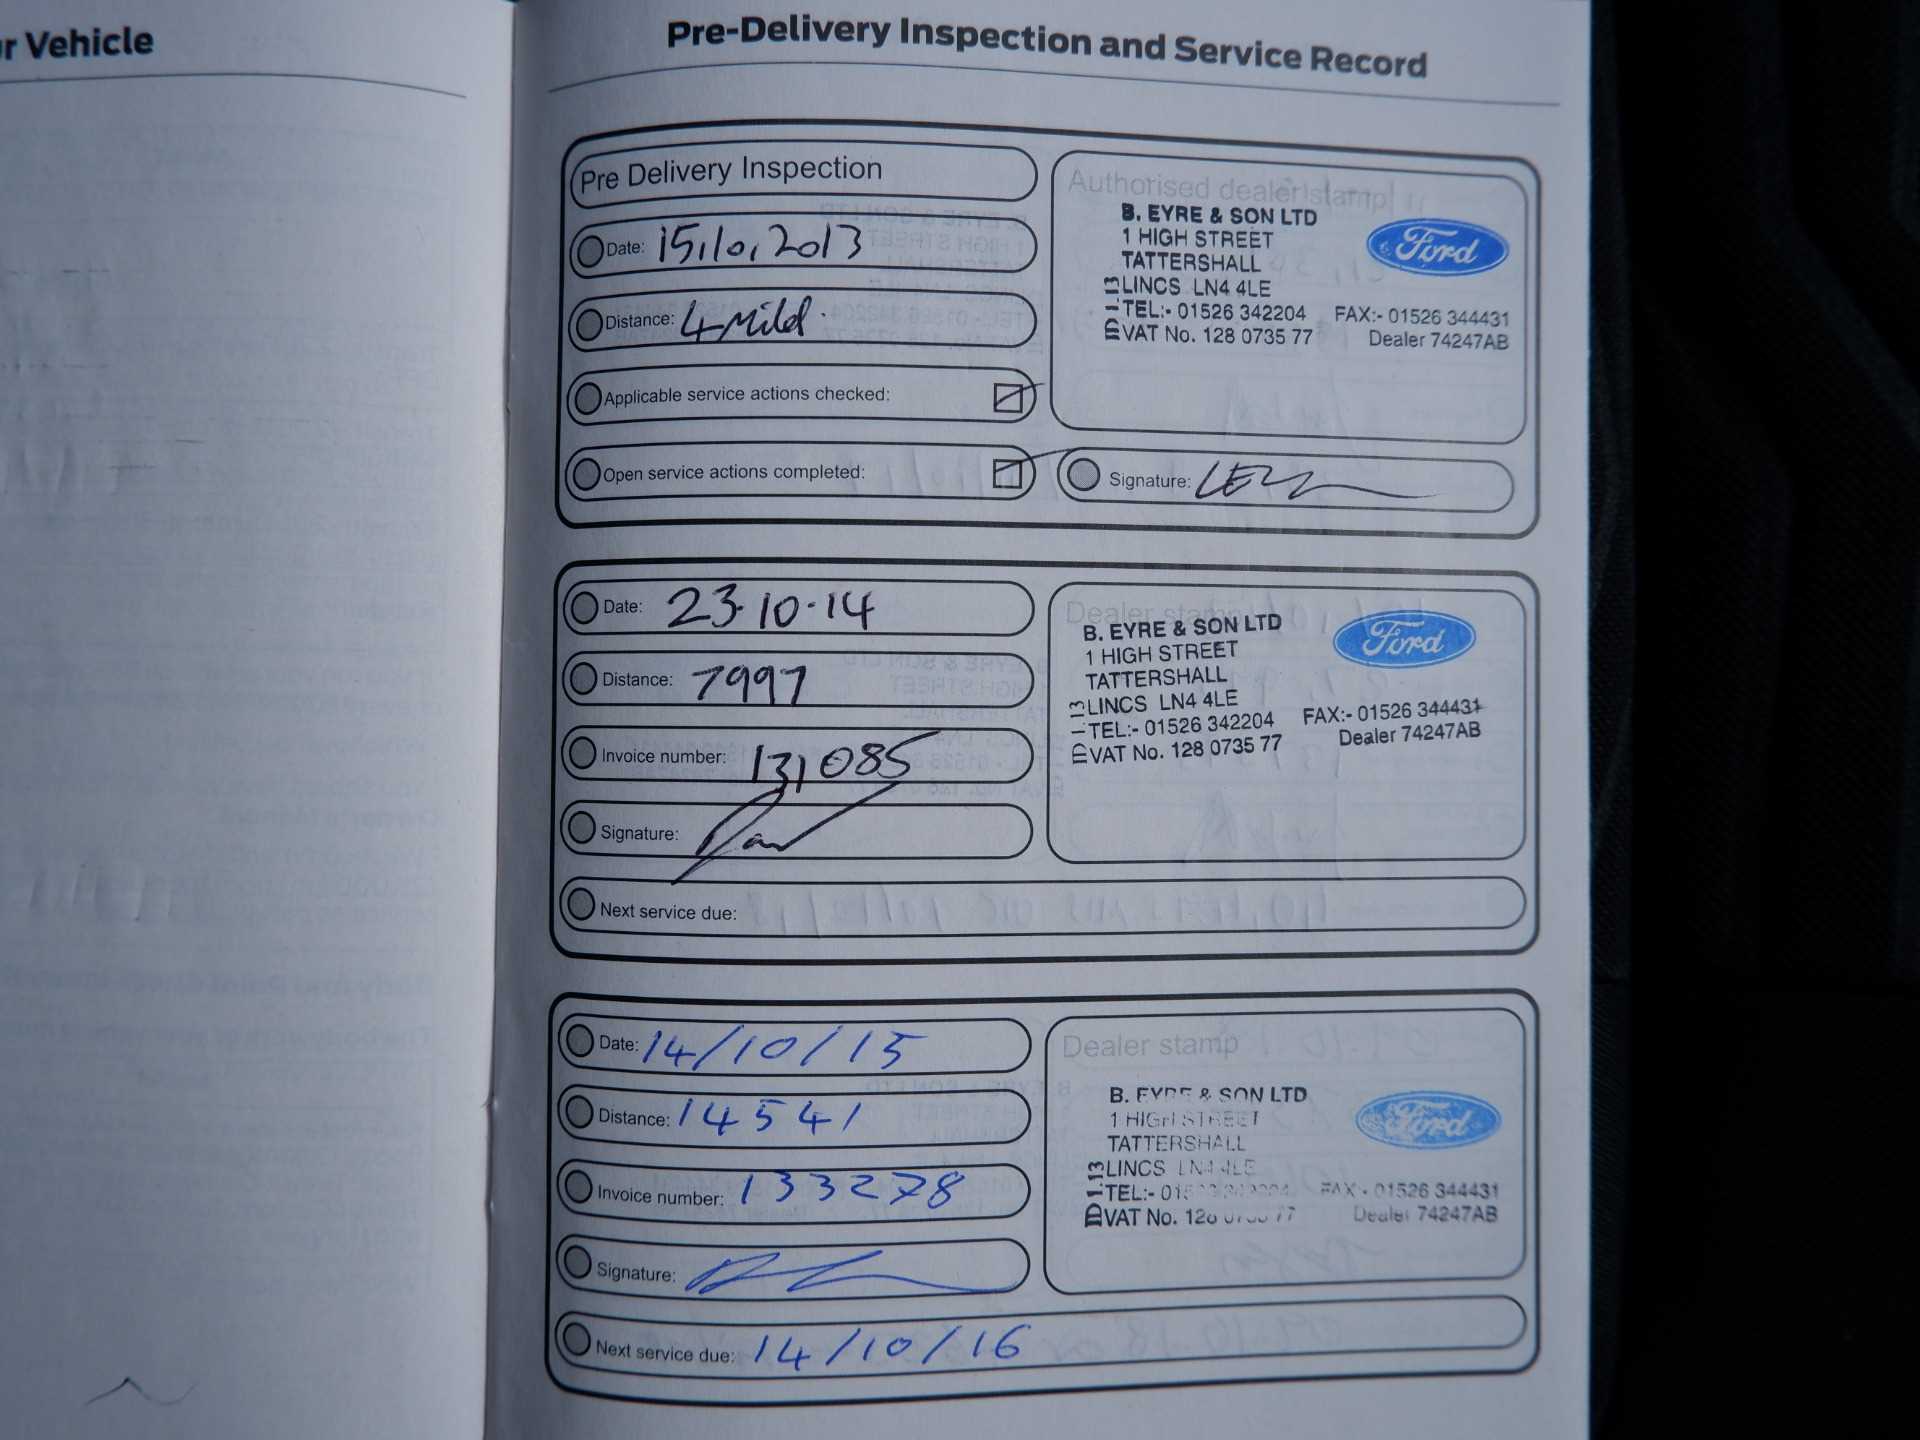 r Vehicle
Pre-Delivery Inspection and Service Record
Pre Delivery Inspection
Date: 15.10.2013
Distance: 4 Miles
Applicable service actions checked:
Open service actions completed:
Authorised dealer stamp
B. EYRE & SON LTD
1 HIGH STREET
TATTERSHALL
LINCS LN4 4LE
TEL:- 01526 342204 FAX:- 01526 344431
VAT No. 128 0735 77 Dealer 74247AB
Ford
Signature:
Date: 23.10.14
Distance: 7997
Invoice number: 131085
Signature:
Next service due:
Dealer stamp
B. EYRE & SON LTD
1 HIGH STREET
TATTERSHALL
LINCS LN4 4LE
TEL:- 01526 342204 FAX:- 01526 344431
VAT No. 128 0735 77 Dealer 74247AB
Ford
Date: 14/10/15
Distance: 14541
Invoice number: 133278
Signature:
Next service due: 14/10/16
Dealer stamp
B. EYRE & SON LTD
1 HIGH STREET
TATTERSHALL
LINCS LN4 4LE
TEL:- FAX:- 01526 344431
VAT No. Dealer 74247AB
Ford